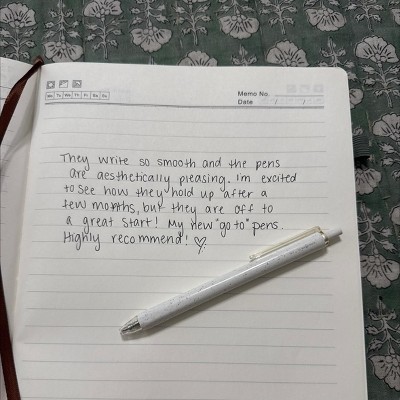 Memo No.
Mo Tu We Th Fr Sa Su
Date / /
They write so smooth and the pens
are aesthetically pleasing. I'm excited
to see how they hold up after a
few months, but they are off to
a great start! My new "go to" pens.
Highly recommend! ♡